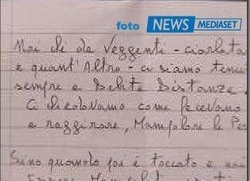 foto NEWS MEDIASET
Noi che da Veggenti - ciarlata
e quant'Altro - ci siamo tenu
sempre a Debite Distanze.
Ci chiedevamo come facevano
a raggirare, Manipolare le Pe
Sino quando poi è toccato a noi